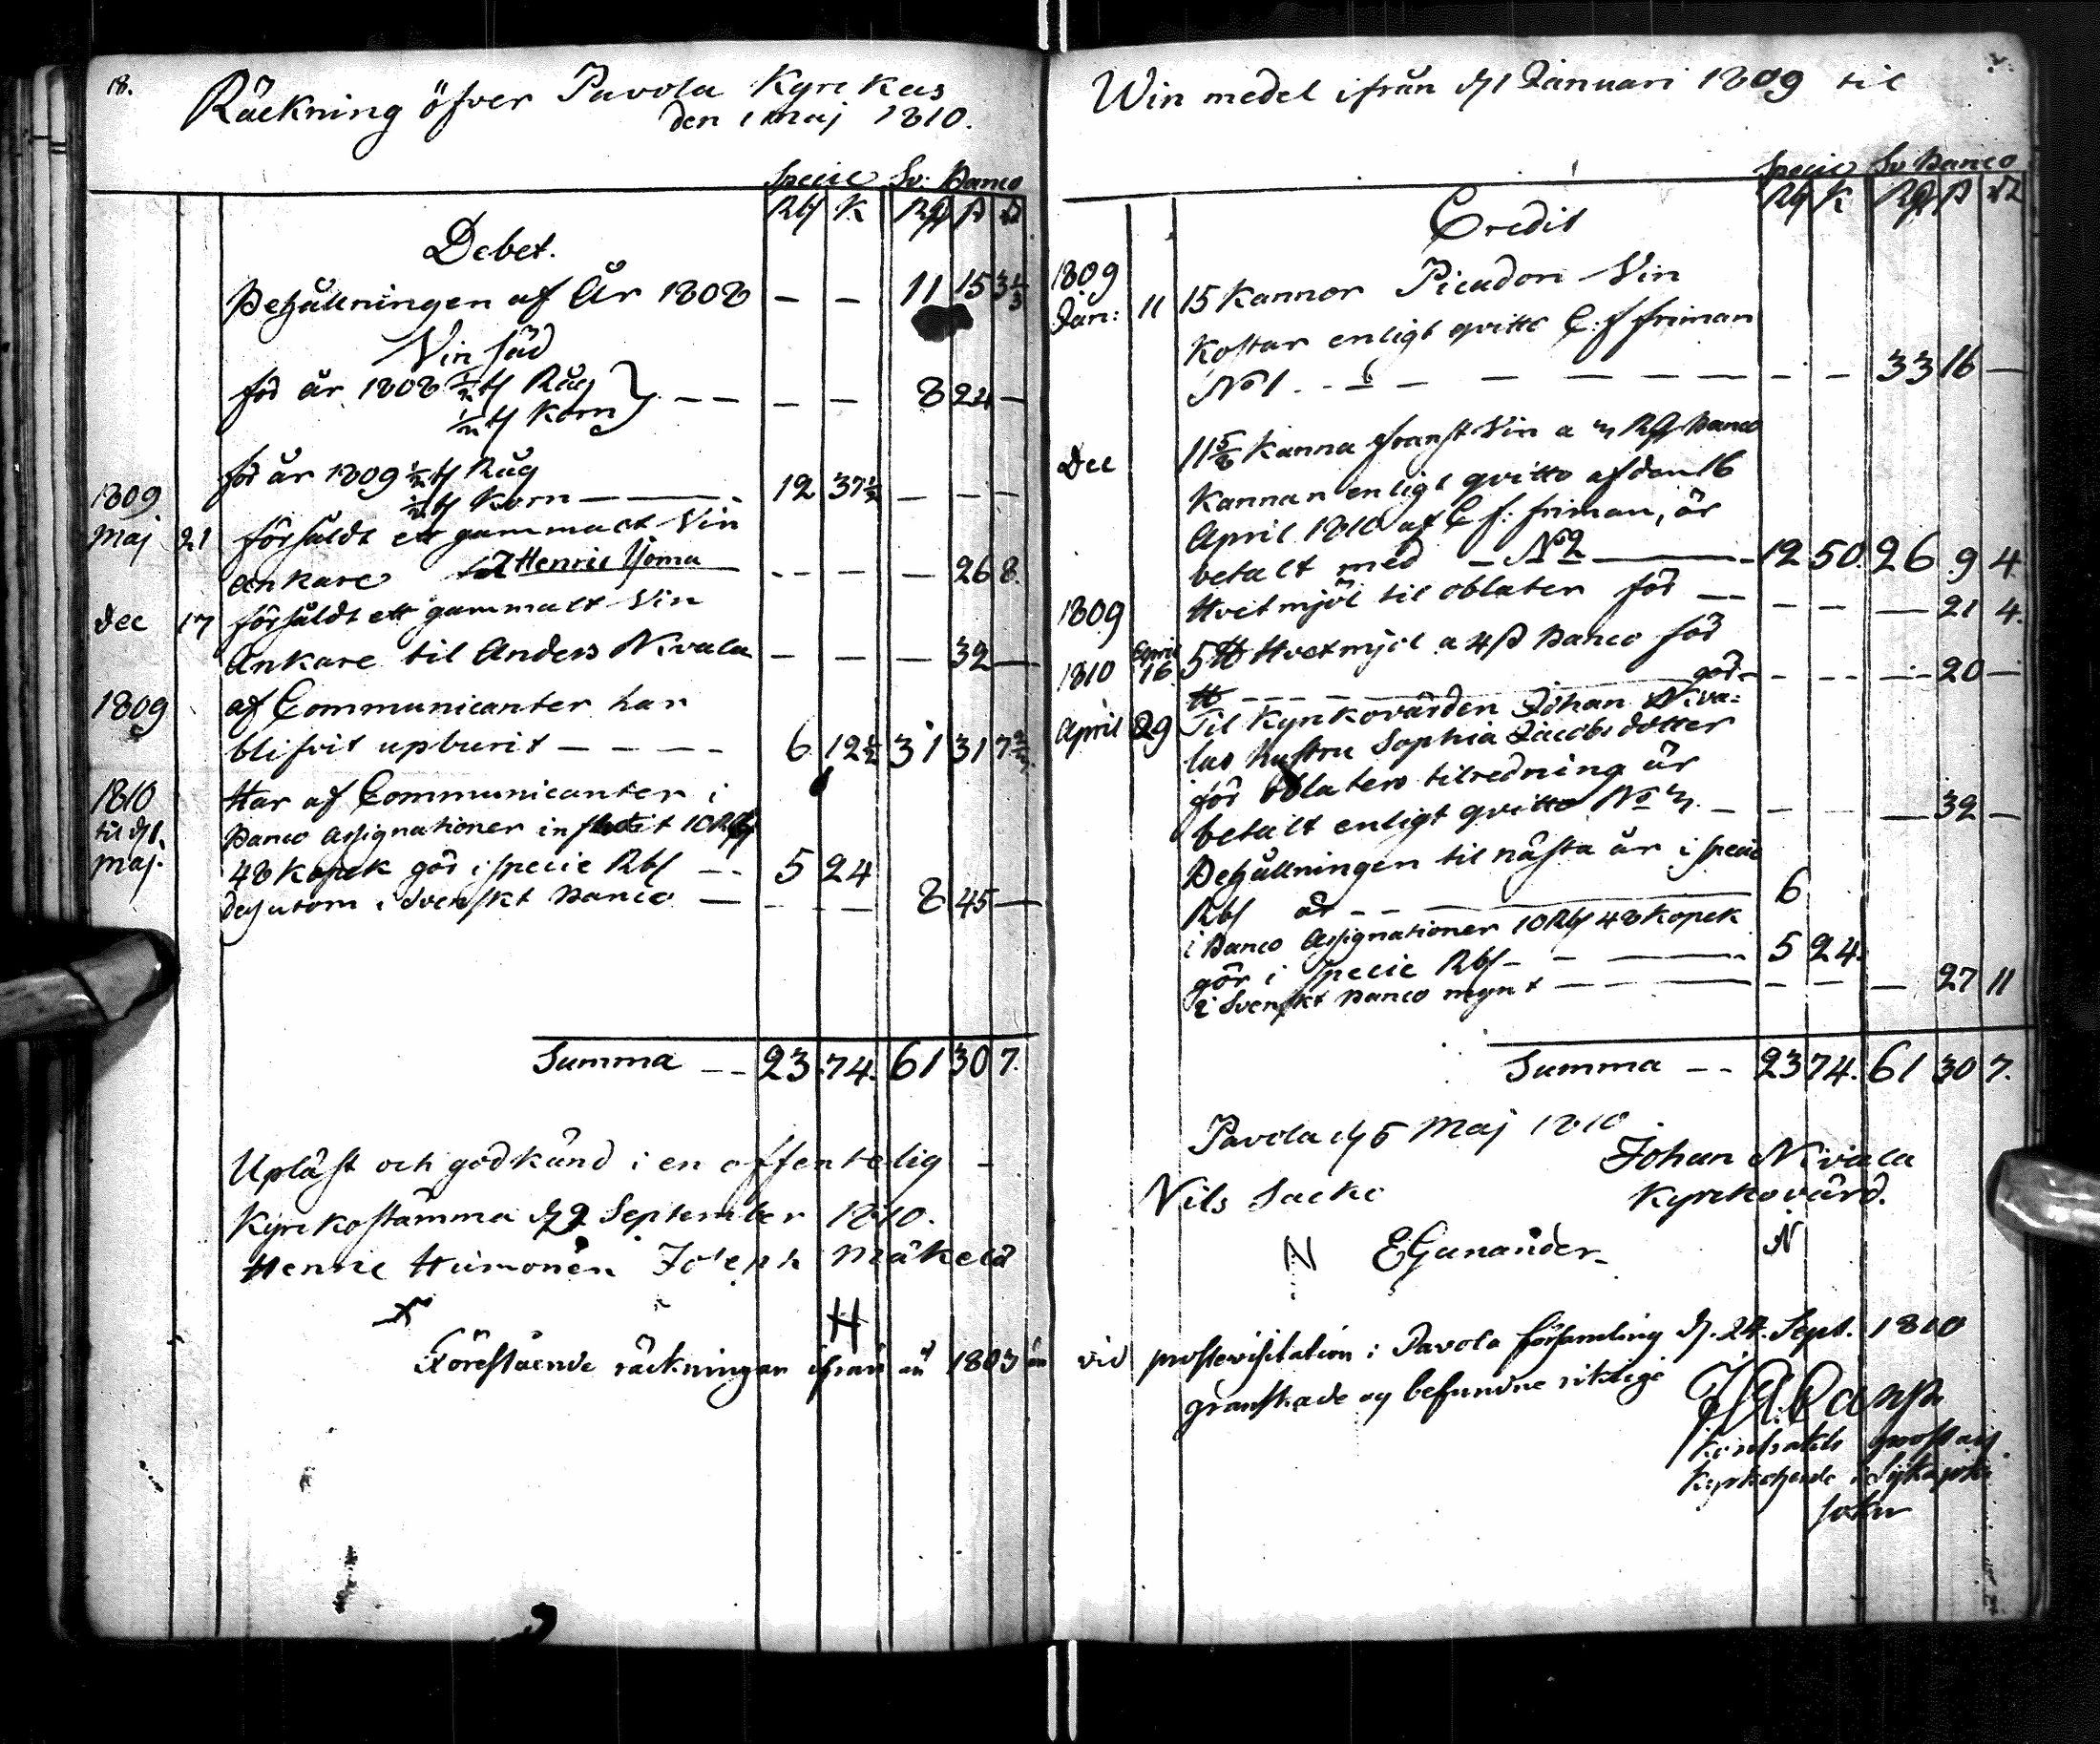 18.
Räckning öfver Pavola Kyrckas
den 1 Maj 1810.
Specie Sv: Banco
Rbl K Rd ß
Debet.
Behållningen af År 1808 — — 11 15 3 1/3
Vin säd
för år 1808 1/2 t Råg
1/2 t Korn — — — — 8 24 —
för år 1809 1/2 t Råg
1/2 t Korn — — 12 37 1/2 — — —
1809
Maj 21 försåldt ett gammalt Vin
ankare til Henric Yoma — — — 26 8.
Dec 17 försåldt ett gammalt Vin
Ankare til Anders Nivala — — — 32 —
1809 af Communicanter har
blifvit upburit — — — — 6 12 1/2 31 31 7 2/3
1810 Har af Communicanter i
til d 1. Banco Assignationer influtit 10 Rbl
Maj. 48 Kopek gör i specie Rbl — — 5 24
dessutom i Svenskt Banco — — — 8 45 —
Summa — — 23 74. 61 30 7.
Upläst och godkänd i en offentelig
Kyrckostämma d 2 September 1810.
Henric Huimonen Joseph Mäkelä
H
Förestående räckningar ifrån år 1803 än
Win medel ifrån d 1 Januari 1809 til
Specie Sv Banco
Rbl K Rd ß
Credit
1809
Jan: 11 15 Kannor Picadon Vin
Kostar enligt qvitto C: f friman
No 1. — — — — — — — — 33 16 —
Dec 11 5/8 Kanna franst Vin a 3 Rd Banco
Kannan enligt qvitto af den 16
April 1810 af C f: friman, är
betalt med — No 2 — 12 50. 26 9 4.
1809 Hvetmjöl til oblater för — — — — — 21 4.
1810 April 16 5 ℔ Hvetmjöl a 4 ß Banco för
℔ — — — gör — — — — 20 —
April 29 Til Kyrkovärden Johan Niva-
las hustru Sophia Jacobsdotter
för oblaters tilredning är
betalt enligt qvitto No 3. — — — 32 —
Behållningen til nästa år i specie
Rbl är — — — 6
i Banco Assignationer 10 Rbl 48 Kopek
gör i specie Rbl — — — 5 24.
i Svenskt Banco mynt — — — — — 27 11
Summa — — 23 74. 61 30 7.
Pavola d 5 Maj 1810
Johan Nivala
Nils Sacko Kyrckovärd.
N EGananders N
vid prostevisitation i Pavola församling d. 24. Sept. 1810
granskade og befundne riktige
Kontrakts prost och
Kyrkoherde i Sijkajoki
sokn